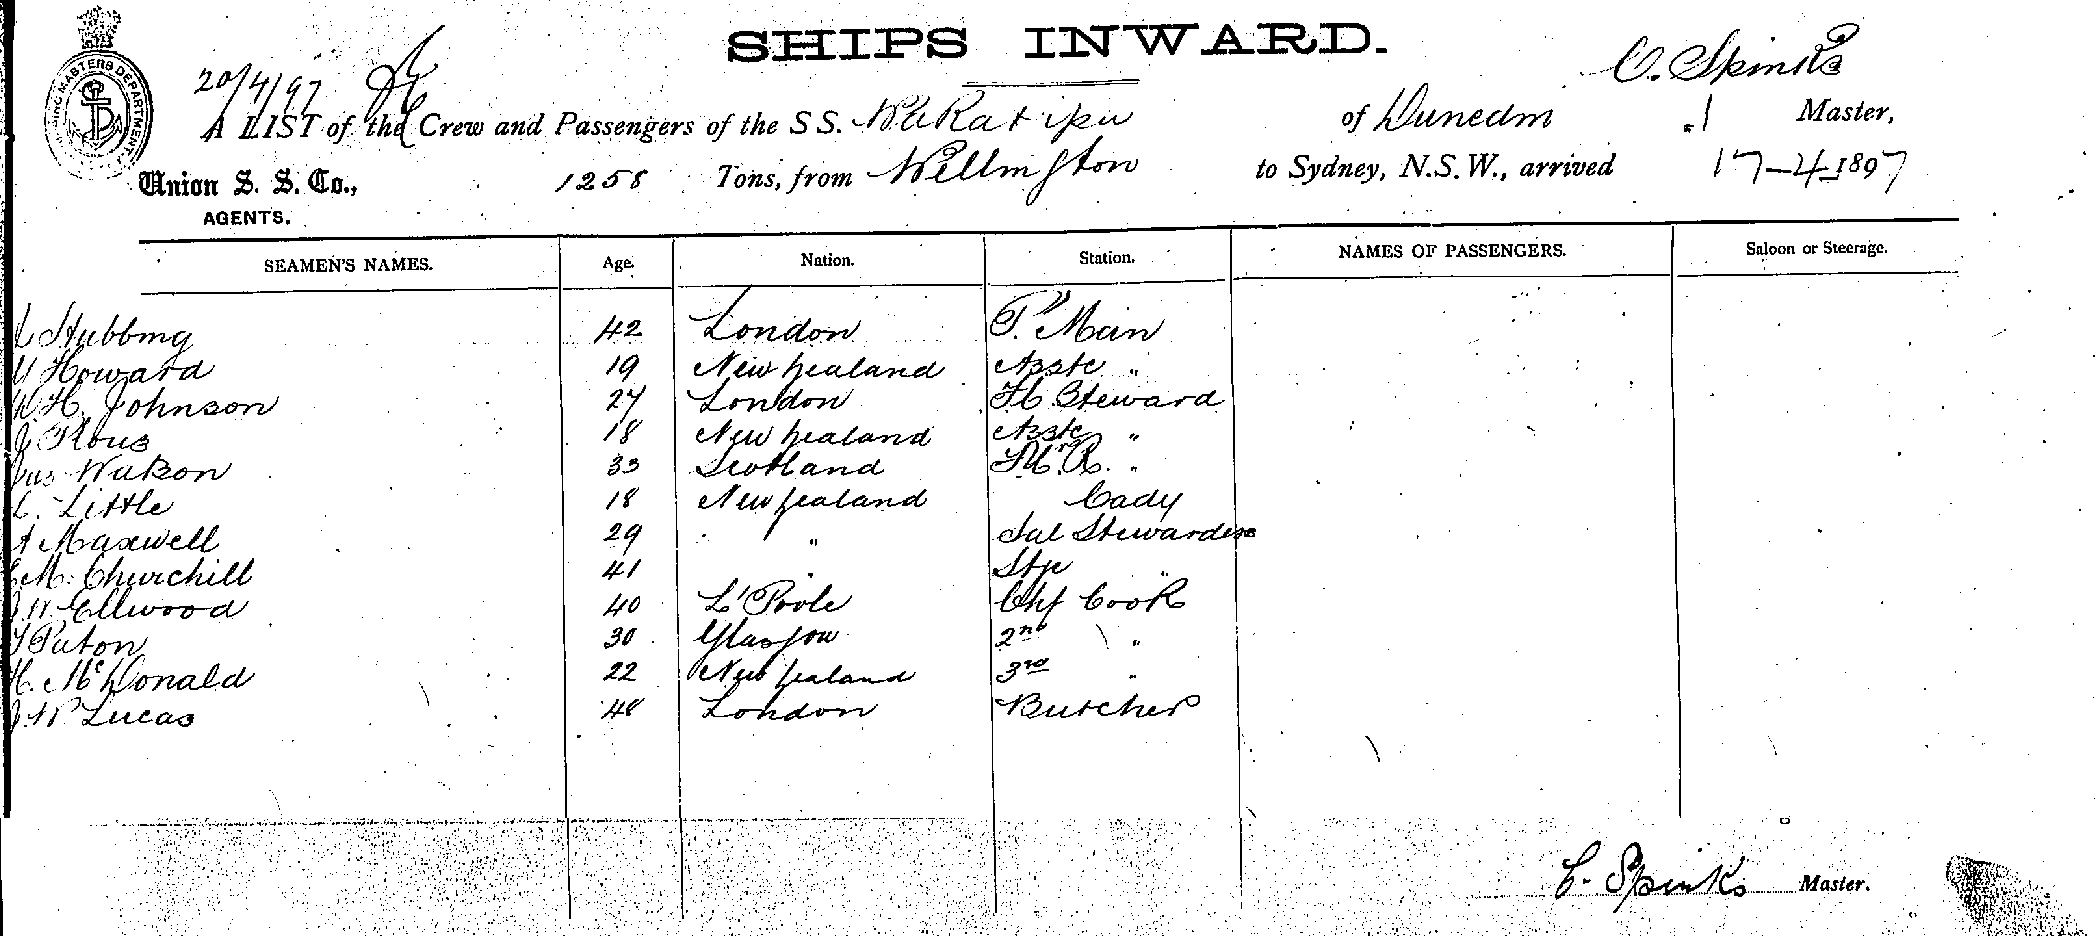 SHIPS INWARD.
C. Spinks
20/4/97
A LIST of the Crew and Passengers of the S S. Wakatipu of Dunedin Master,
Union S. S. Co., 1258 Tons, from Wellington to Sydney, N.S.W., arrived 17-4-1897
AGENTS.
SEAMEN'S NAMES. Age. Nation. Station. NAMES OF PASSENGERS. Saloon or Steerage.
Stubbing 42 London P. Man
Howard 19 New Zealand Asste "
H. Johnson 27 London F.C. Steward
Rous 18 New Zealand Asste "
Jas Watson 33 Scotland "
C. Little 18 New Zealand Cady
A Maxwell 29 " " Sal Stewardess
M. Churchill 41 " Stge "
J. W. Ellwood 40 L'Poole Chf Cook
T Paton 30 Glasgow 2nd "
H. McDonald 22 New Zealand 3rd "
J. W. Lucas 48 London Butcher
C. Spinks Master.